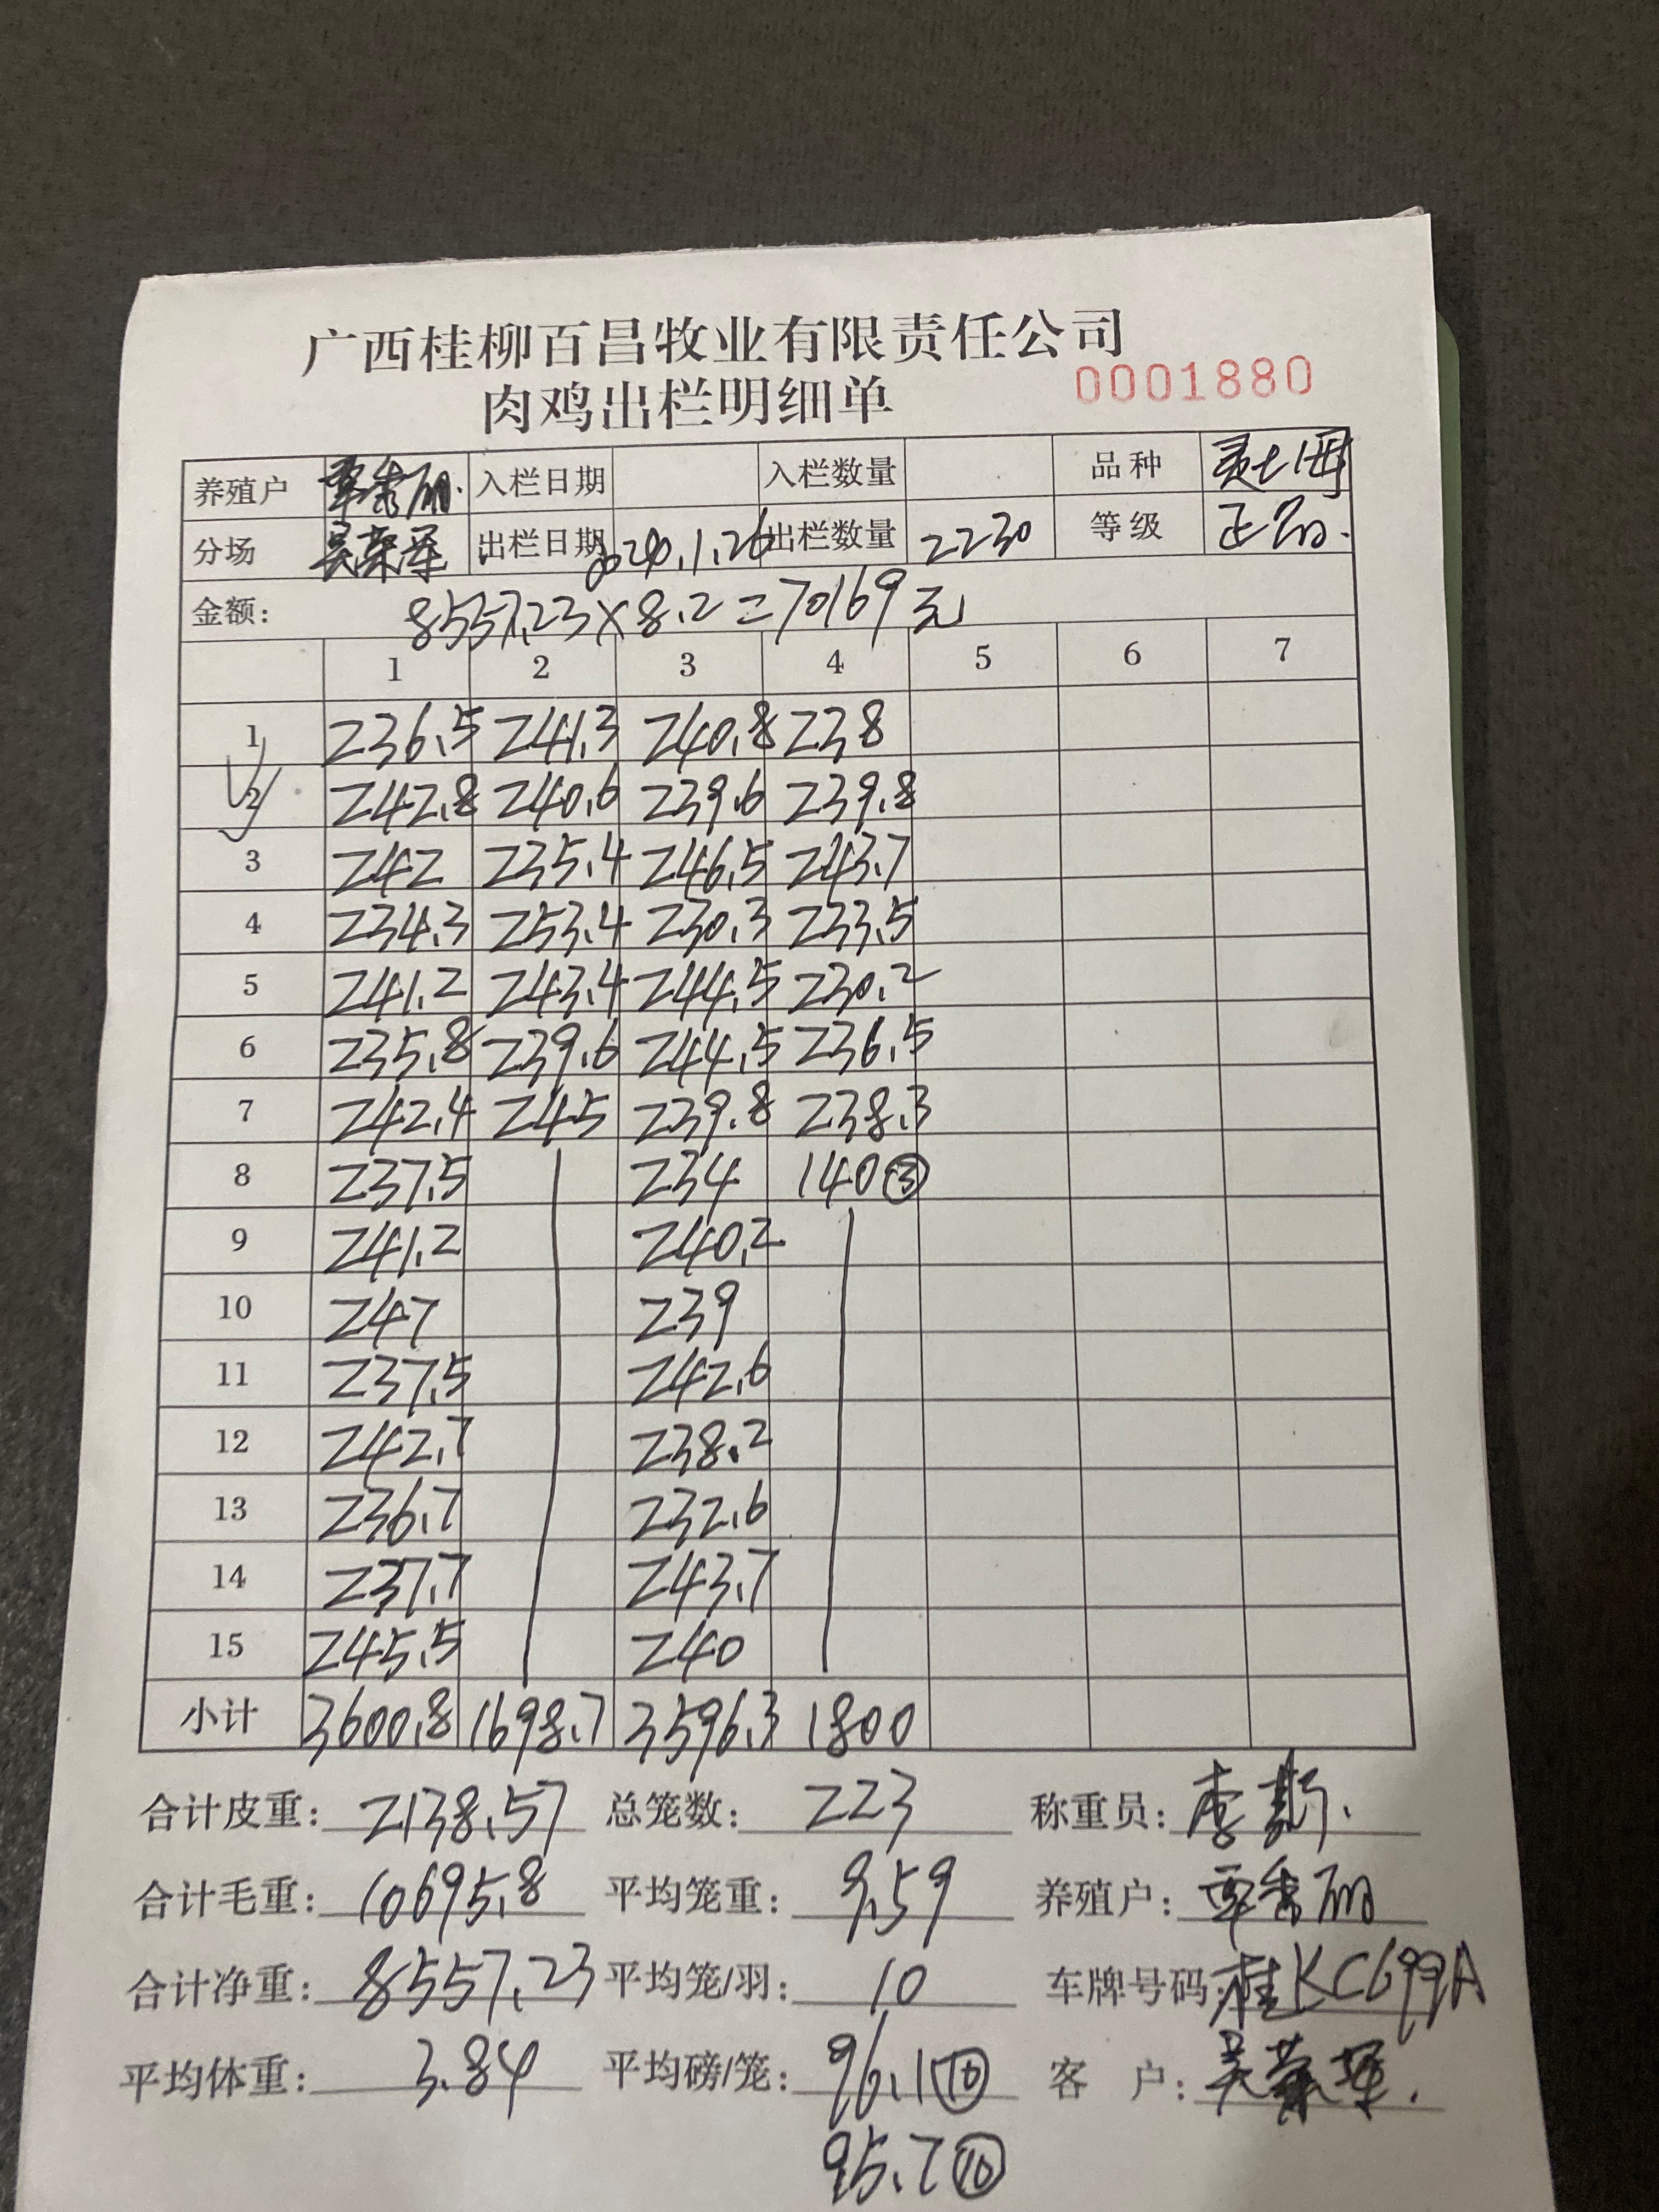 广西桂柳百昌牧业有限责任公司
肉鸡出栏明细单 0001880
养殖户 覃秀丽 入栏日期 入栏数量 品种
分场 吴荣军 出栏日期 2024.1.26 出栏数量 2230 等级 正品.
金额: 8557.23×8.2=70169元
1 2 3 4 5 6 7
1 236.5 241.3 240.8 238
2 242.8 240.6 239.6 239.8
3 242 235.4 246.5 243.7
4 234.3 253.4 230.3 233.5
5 241.2 243.4 244.5 230.2
6 235.8 239.6 244.5 236.5
7 242.4 245 239.8 238.3
8 237.5 234 140③
9 241.2 240.2
10 247 239
11 237.5 242.6
12 242.7 238.2
13 236.7 232.6
14 237.7 243.7
15 245.5 240
小计 3600.8 1698.7 3596.3 1800
合计皮重: 2138.57 总笼数: 223 称重员: 李
合计毛重: 10695.8 平均笼重: 9.59 养殖户: 覃秀丽
合计净重: 8557.23 平均笼/羽: 10 车牌号码: 桂KC699A
平均体重: 3.84 平均磅/笼: 96.1⑩ 客户: 吴
95.7⑩